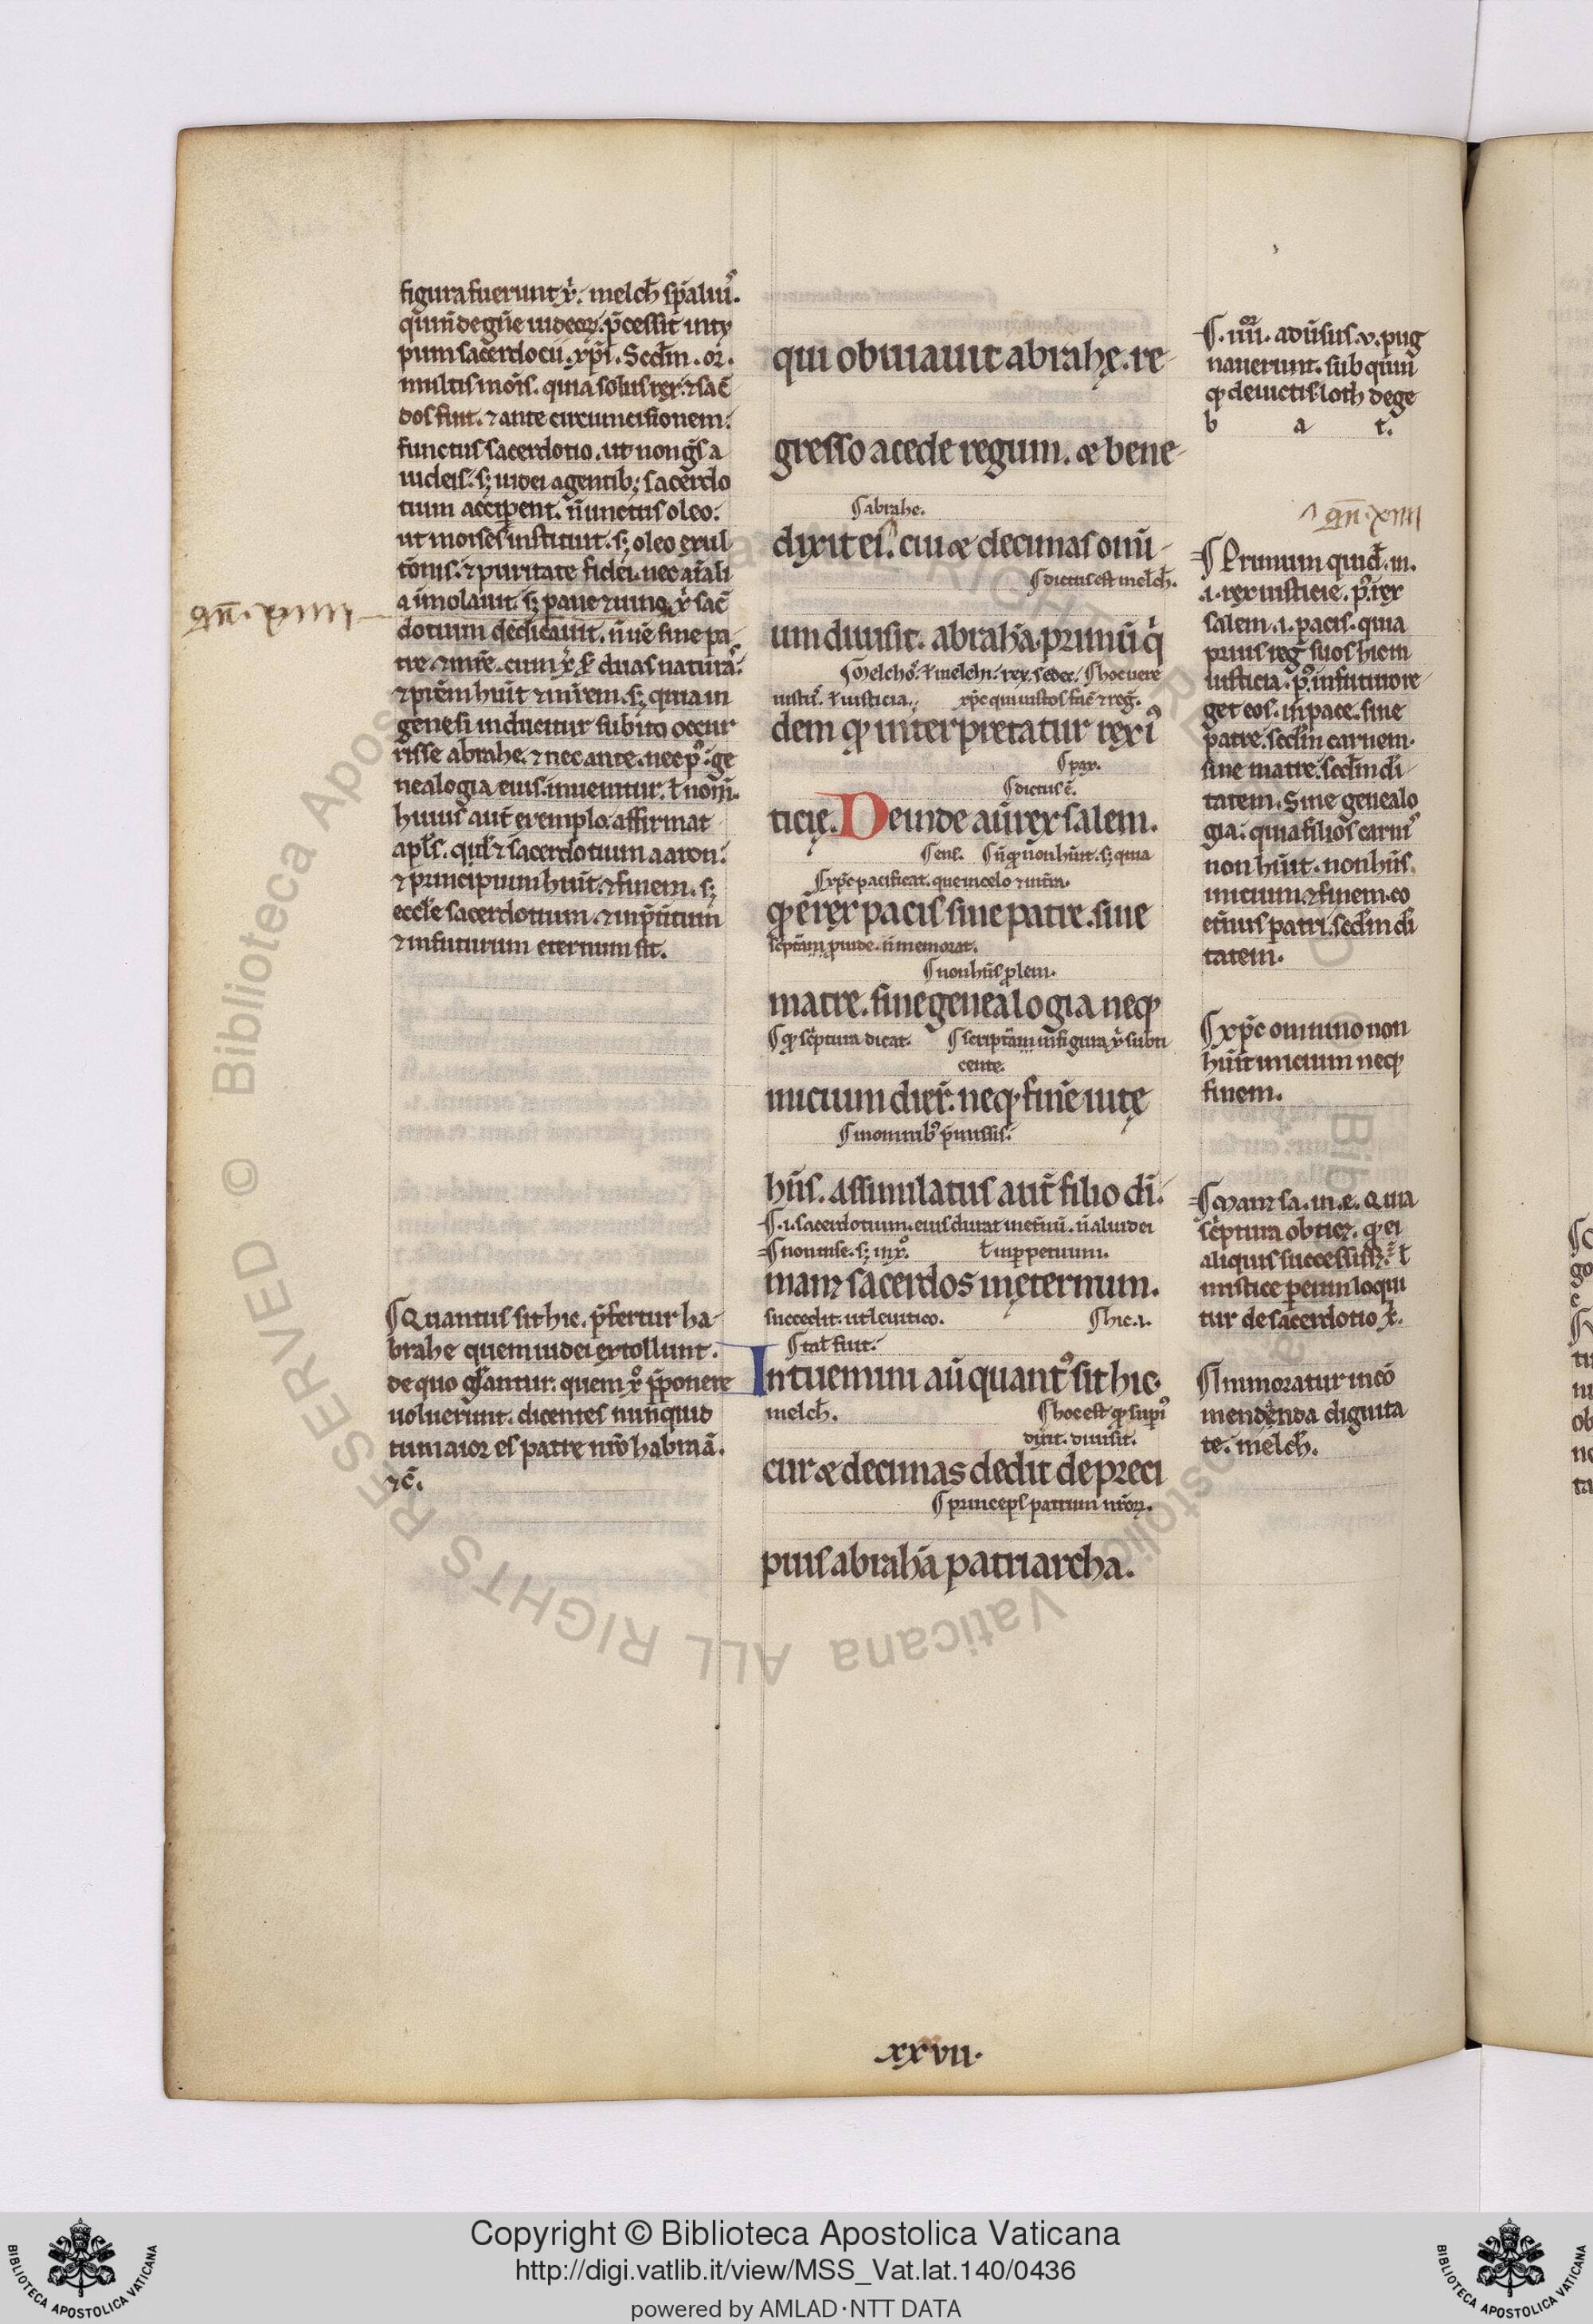 figura fuerunt x̾. melch̄ sp̄aliu᷒.
qui n̄ de gn̄e iudeoꝝ. p̄cessit in ty
pum sacerdocii .xp̄i. Scd̄m .or̄.
multis mōis. quia solus rex: ⁊ sac̄
dos fuit. ⁊ ante circumcisionem:
functus sacerdotio. ut non gn̄s a
iudeis. s; iudei a gentib; sacerdo
tium accip̄ent. n̄ unctus oleo.
ut moises instituit. s; oleo exul
tōnis. ⁊ puritate fidei. nec aīali
a īmolauit. s; pane ⁊ uino. x̾ sac̄
dotium dedicauit. n̄ ū sine pa
tre ⁊ mr̄e. cum x̾ s̄ duas naturas.
⁊ pr̄em hūit ⁊ mr̄em. s; quia in
genesi inducitur subito occur
risse abrahe. ⁊ nec ante. nec p᷒. ge
nealogia eius. inuenitur. ł nom̄.
huius aut̄ exemplo. affirmat
apl̄s. qd̄ ⁊ sacerdotium aaron.
⁊ principium hūit. ⁊ finem. s;
eccl̄e sacerdotium. ⁊ in p̄titum
⁊ in futurum eternum sit.
¶ Quantus sit hic. p̄fertur ha
brahe quem iudei extollunt.
de quo gl̄iantur. quem x̾ p̄ponere
uoluerunt. dicentes nunquid
tu maior es patre nr̄o habraā.
⁊c̄.
gn̄. xiiii
qui obuiauit abrahę. re
gresso a cede regum. ⁊ bene
¶ abrahe.
dixit ei. cui ⁊ decimas omī
¶ dictus est melch̄.
um diuisit. abrahā. primū q̄
¶ Melcho᷒. ł melchi. rex. sedec. ¶ hoc uere
iustū. ł iusticia. xp̄c qui iustos fac̄ ⁊ reḡ.
dem qꝫ interpretatur rex i᷒
¶ pax.
¶ dictus ē.
ticię. Deinde aū rex salem.
¶ ens. ¶ n̄ qꝫ non hūit. s; quia
¶ xp̄c pacificat. que in celo ⁊ in tr̄a.
qꝫ ē rex pacis sine patre. sine
sc̄ptam proinde. n̄ memorat.
¶ non hn̄s ꝓlem.
matre. sine genealogia neqꝫ
¶ qꝫ sc̄ptura dicat. ¶ scriptam in figura x̾ subti
cente.
inicium dierꝝ. neqꝫ finē uitę
¶ in omnib᷒ p̄missis.
hn̄s. assimilatus aut̄ filio dī.
¶ .i. sacerdotium. eius durat in et̄nū. n̄ alii dei
¶ non in se. s; in x̾. ł in perpetuum.
manꝫ sacerdos in ęternum.
succedit. ut leuitico. ¶ hic .i.
¶ tal̄ fuit.
Intuemini aū quant᷒ sit hic.
melch̄. ¶ hoc est qꝫ supi᷒
dix̄it. diuisit.
cui ⁊ decimas dedit de preci
¶ princeps patrum nr̄oꝝ.
puis abrahā patriarcha.
¶ .iiii.or adūsus .v. pug
nauerunt. sub quin
qꝫ deuictis. loth dege
b a t.
gn̄. xiiii
¶ Primum quid̄. in.
.i. rex iusticie. p᷒. rex
salem .i. pacis. quia
prius reḡ suos hic in
iusticia. p᷒. in futuro re
get eos. in pace. sine
patre. scd̄m carnem.
sine matre. scd̄m di
tatem. Sine genealo
gia. quia filios carni᷒
non hūit. non hn̄s.
inicium. ⁊ finem. co
et̄nus patri. scd̄m di
tatem.
¶ xp̄c omnino non
hūit inicium neqꝫ
finem.
¶ Manꝫ sa. in. e. Quia
sc̄ptura obticꝫ. qꝫ ei
aliquis successissꝫ. ł
mistice per eum loqui
tur de sacerdotio x̾.
¶ Immoratur in cō
mendenda dignita
te. melch̄.
xxvii.
© Biblioteca Apostolica Vaticana ALL RIGHTS RESERVED
Copyright © Biblioteca Apostolica Vaticana
http://digi.vatlib.it/view/MSS_Vat.lat.140/0436
powered by AMLAD·NTT DATA
BIBLIOTECA APOSTOLICA VATICANA
BIBLIOTECA APOSTOLICA VATICANA